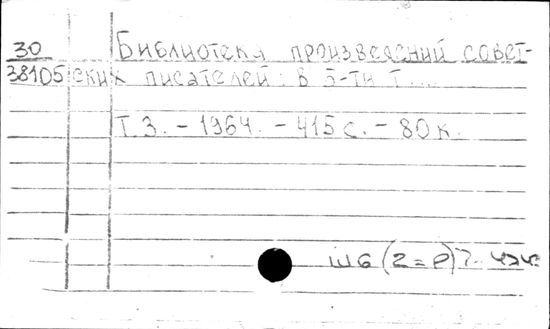 30 Библиотека произведений совет-
38105 ских писателей: в 5-ти т...
Т. 3. - 1964. - 415 с. - 80 к.
Ш6(2=Р)7